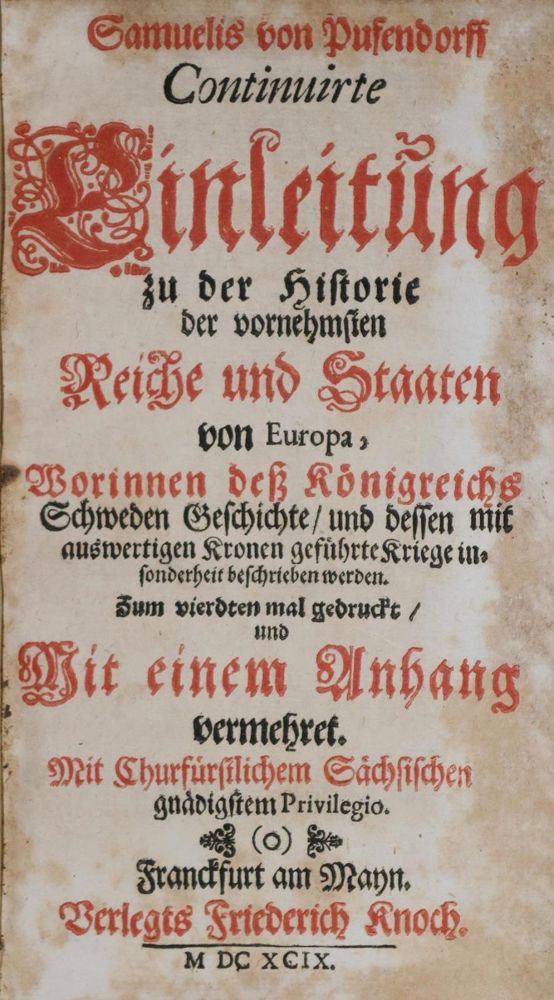 Samuelis von Pufendorff
Continuirte
Einleitung
zu der Historie
der vornehmsten
Reiche und Staaten
von Europa,
Worinnen deß Königreichs
Schweden Geschichte/ und dessen mit
auswertigen Kronen geführte Kriege in-
sonderheit beschrieben werden.
Zum vierdten mal gedruckt/
und
Mit einem Anhang
vermehret.
Mit Churfürstlichem Sächsischen
gnädigstem Privilegio.
(O)
Franckfurt am Mayn.
Verlegts Friederich Knoch.
M DC XCIX.